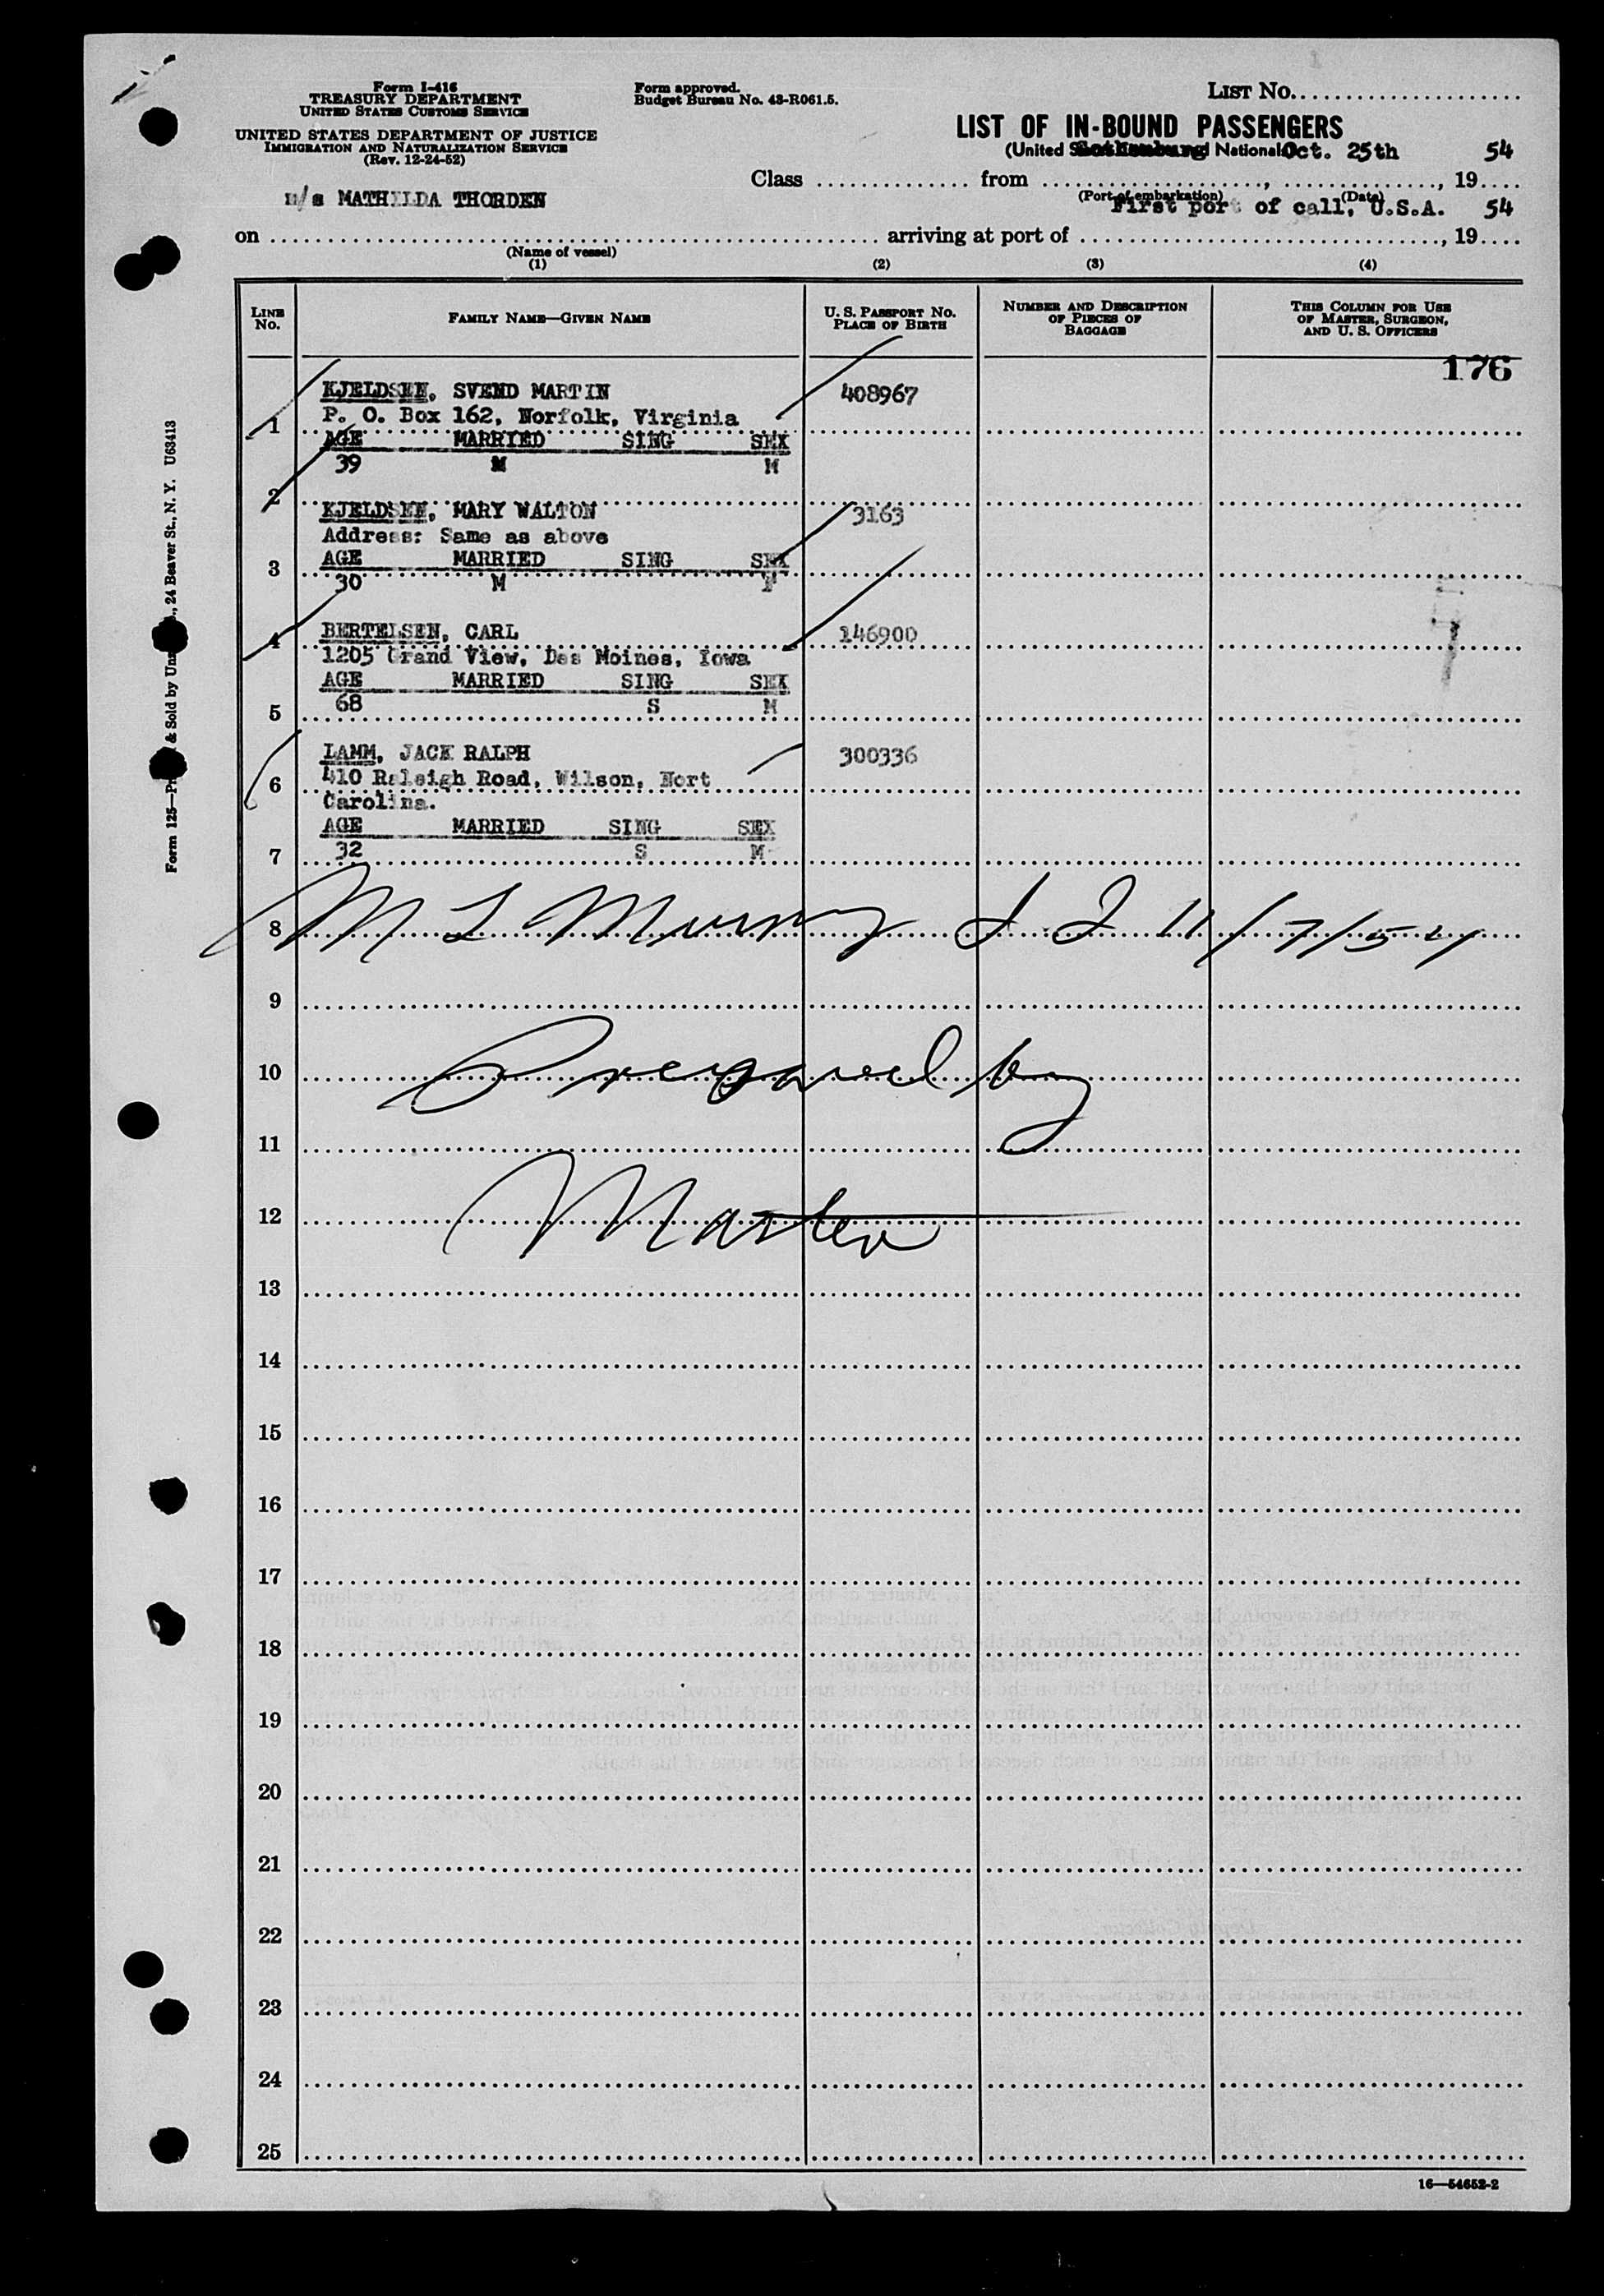 Form I-416
TREASURY DEPARTMENT
UNITED STATES CUSTOMS SERVICE
UNITED STATES DEPARTMENT OF JUSTICE
IMMIGRATION AND NATURALIZATION SERVICE
(Rev. 12-24-52)
Form approved.
Budget Bureau No. 43-R061.5.
LIST No.
LIST OF IN-BOUND PASSENGERS
(United National
Gothenburg Oct. 25th 54
Class from , , 19
(Port of embarkation) (Date)
m/s MATHILDA THORDEN
First port of call, U.S.A. 54
on arriving at port of , 19
(Name of vessel)
(1) (2) (3) (4)
LINE No.
FAMILY NAME—GIVEN NAME
U. S. PASSPORT No.
PLACE OF BIRTH
NUMBER AND DESCRIPTION
OF PIECES OF
BAGGAGE
THIS COLUMN FOR USE
OF MASTER, SURGEON,
AND U. S. OFFICERS
176
KJELDSEN, SVEND MARTIN 408967
P. O. Box 162, Norfolk, Virginia
1
AGE MARRIED SING SEX
39 M M
2
KJELDSEN, MARY WALTON 3163
Address: Same as above
AGE MARRIED SING SEX
3
30 M F
BERTELSEN, CARL 146900
4
1205 Grand View, Des Moines, Iowa
AGE MARRIED SING SEX
68 S M
5
LAMM, JACK RALPH 300336
410 Raleigh Road, Wilson, Nort
6
Carolina.
AGE MARRIED SING SEX
32 S M
7
8 M L Murray I I 11/7/54
9
10 Prepared by
11
12 Master
13
14
15
16
17
18
19
20
21
22
23
24
25
16—54652-2
Form 125— & Sold by , 24 Beaver St., N. Y. U63413